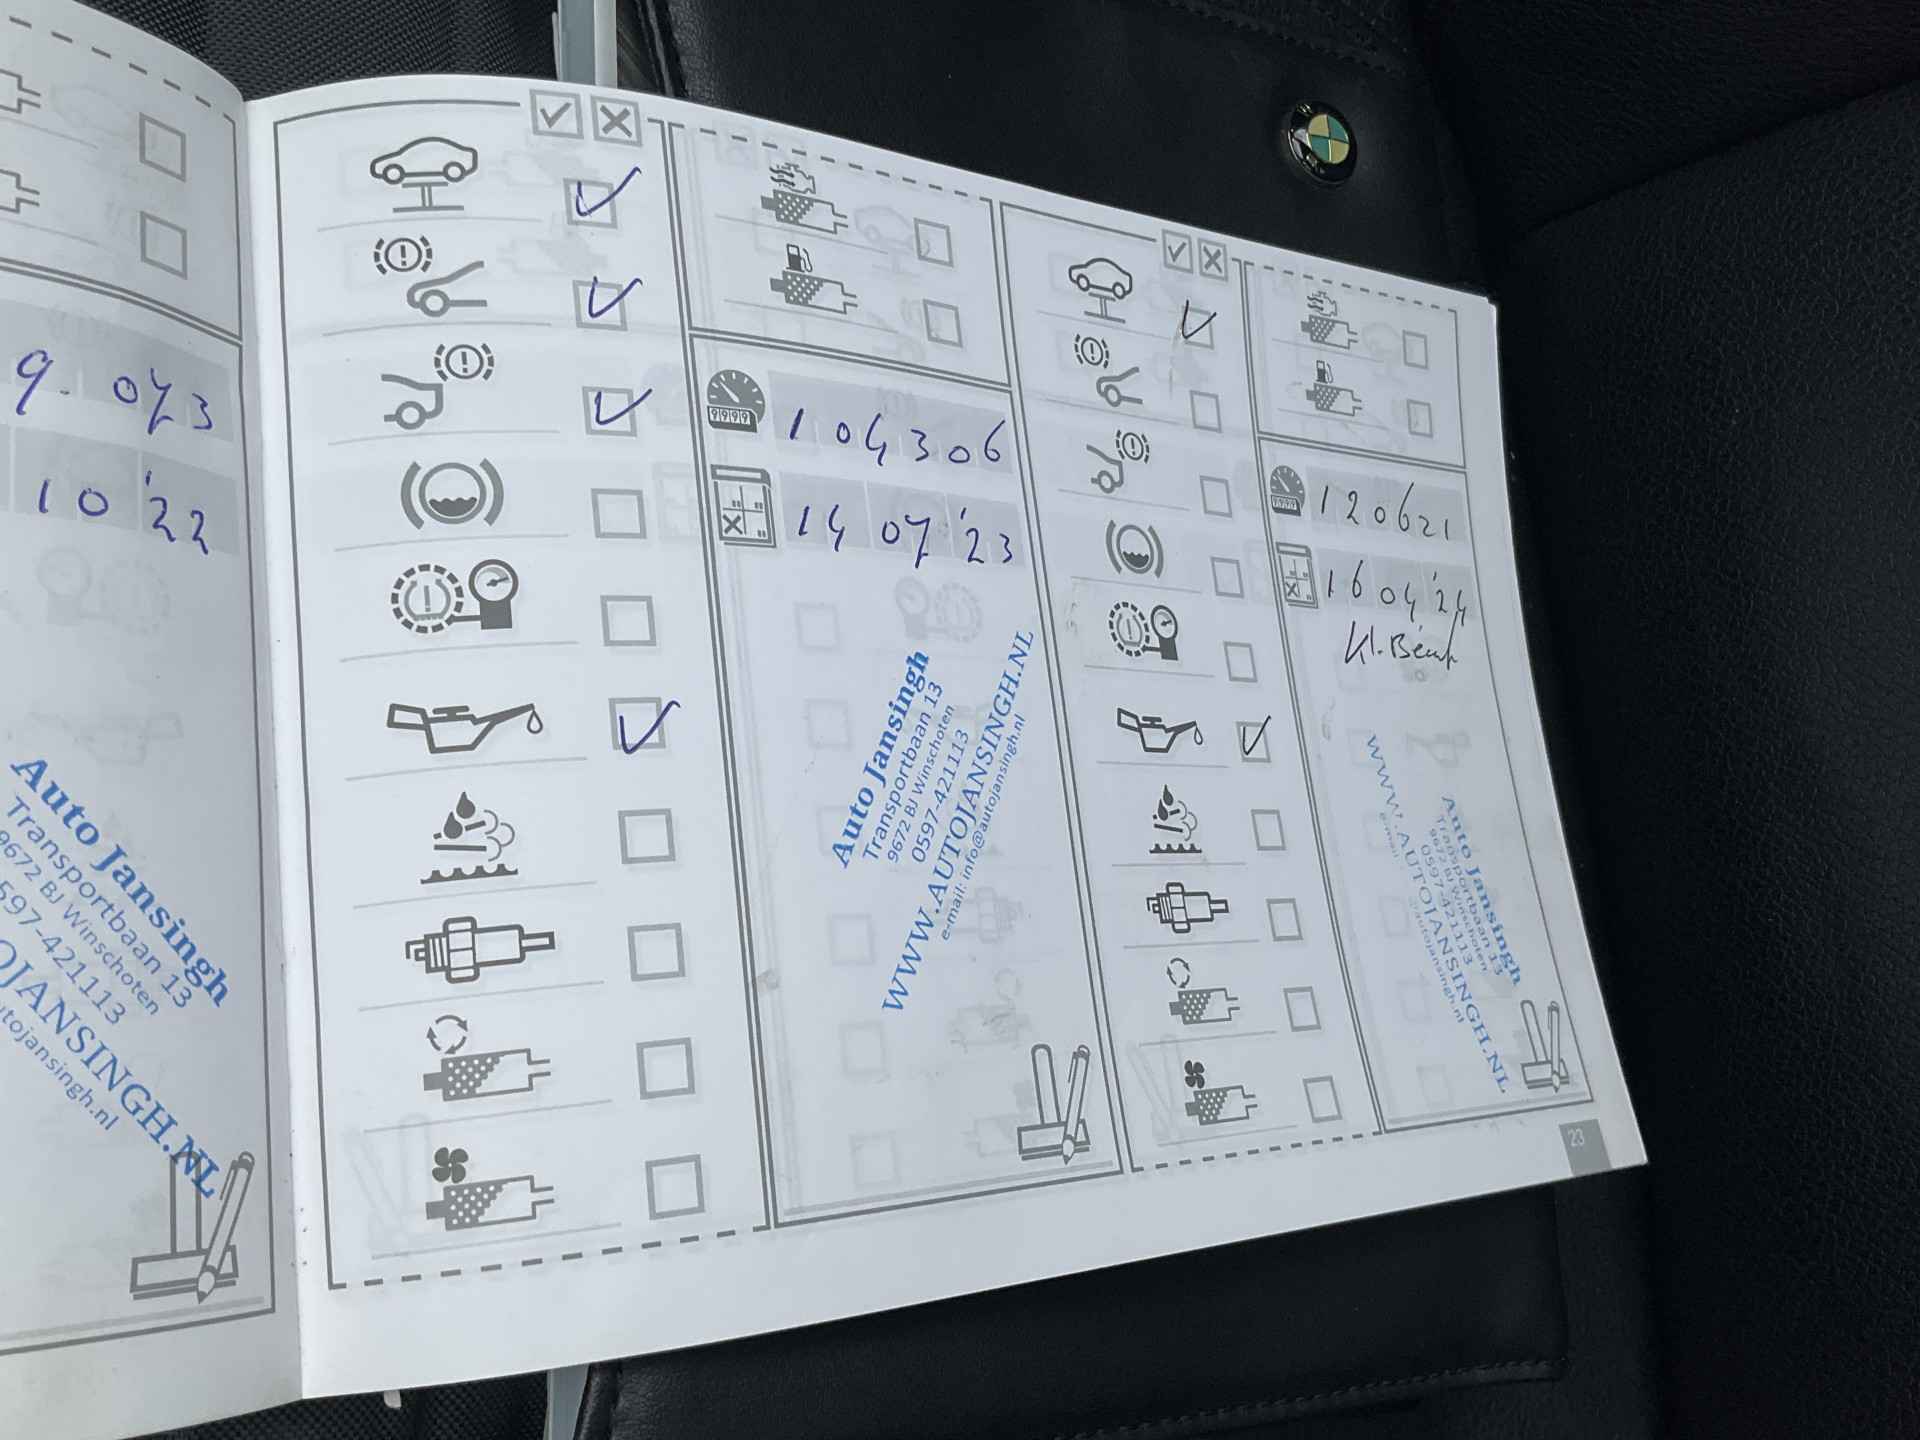 9.073
10'22
Auto Jansingh
Transportbaan 13
9672 BJ Winschoten
597-421113
OJANSINGH.NL
utojansingh.nl
9999
104306
14 07 '23
Auto Jansingh
Transportbaan 13
9672 BJ Winschoten
0597-421113
WWW.AUTOJANSINGH.NL
e-mail: info@autojansingh.nl
9999
120621
16 04 '24
Auto Jansingh
Transportbaan 13
9672 BJ Winschoten
0597-421113
WWW.AUTOJANSINGH.NL
e-mail
autojansingh.nl
23